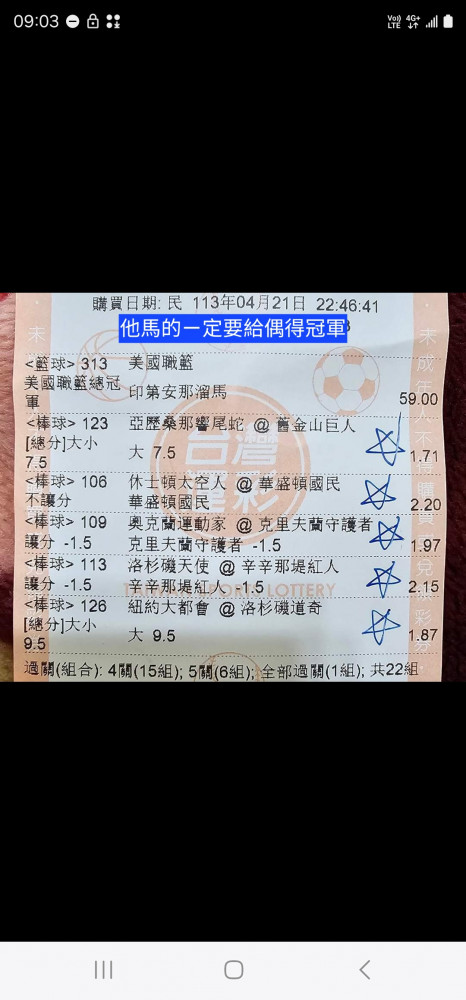 09:03
Vo) 4G+
LTE
購買日期: 民 113年04月21日 22:46:41
他馬的一定要給偶得冠軍
<籃球> 313 美國職籃
美國職籃總冠軍 印第安那溜馬 59.00
<棒球> 123 亞歷桑那響尾蛇 @ 舊金山巨人
[總分]大小
7.5 大 7.5 1.71
<棒球> 106 休士頓太空人 @ 華盛頓國民
不讓分 華盛頓國民 2.20
<棒球> 109 奧克蘭運動家 @ 克里夫蘭守護者
讓分 -1.5 克里夫蘭守護者 -1.5 1.97
<棒球> 113 洛杉磯天使 @ 辛辛那堤紅人
讓分 -1.5 辛辛那堤紅人 -1.5 2.15
<棒球> 126 紐約大都會 @ 洛杉磯道奇
[總分]大小
9.5 大 9.5 1.87
過關(組合): 4關(15組); 5關(6組); 全部過關(1組); 共22組
台灣
運彩